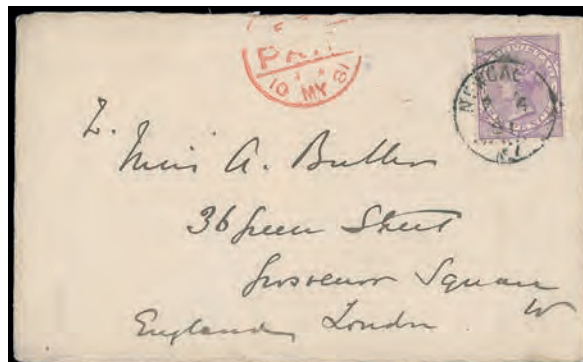 PAID
10 MY 81
NEWCAS
POSTAGE
Miss A. Butler
36 Green Street
Grosvenor Square
W
England London